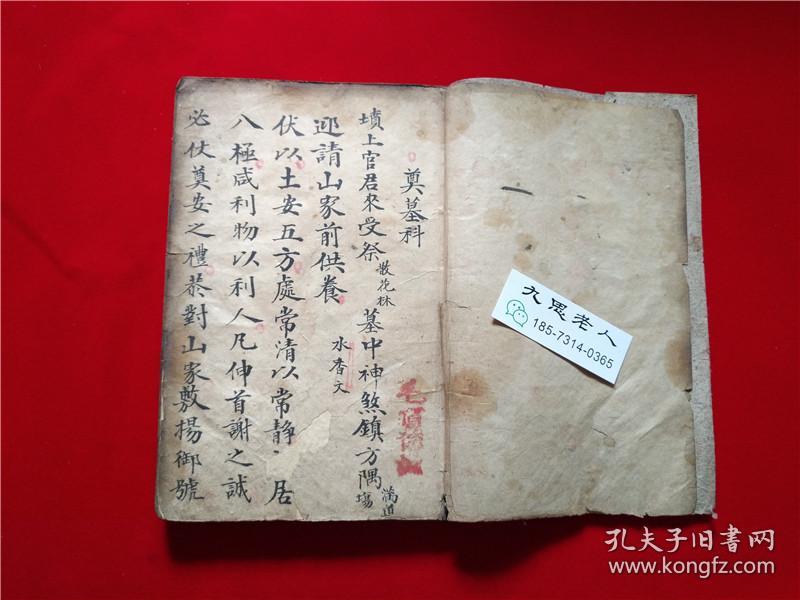 奠墓科
墳上官君來受祭 散花林 墓中神煞鎮方隅 滿道場
迎請山家前供養
水香文
伏以土安五方處常清以常静居
八極咸利物以利人凡伸首謝之誠
必仗奠安之禮恭對山家敷揚御號
九思老人
185-7314-0365
孔夫子旧书网
www.kongfz.com